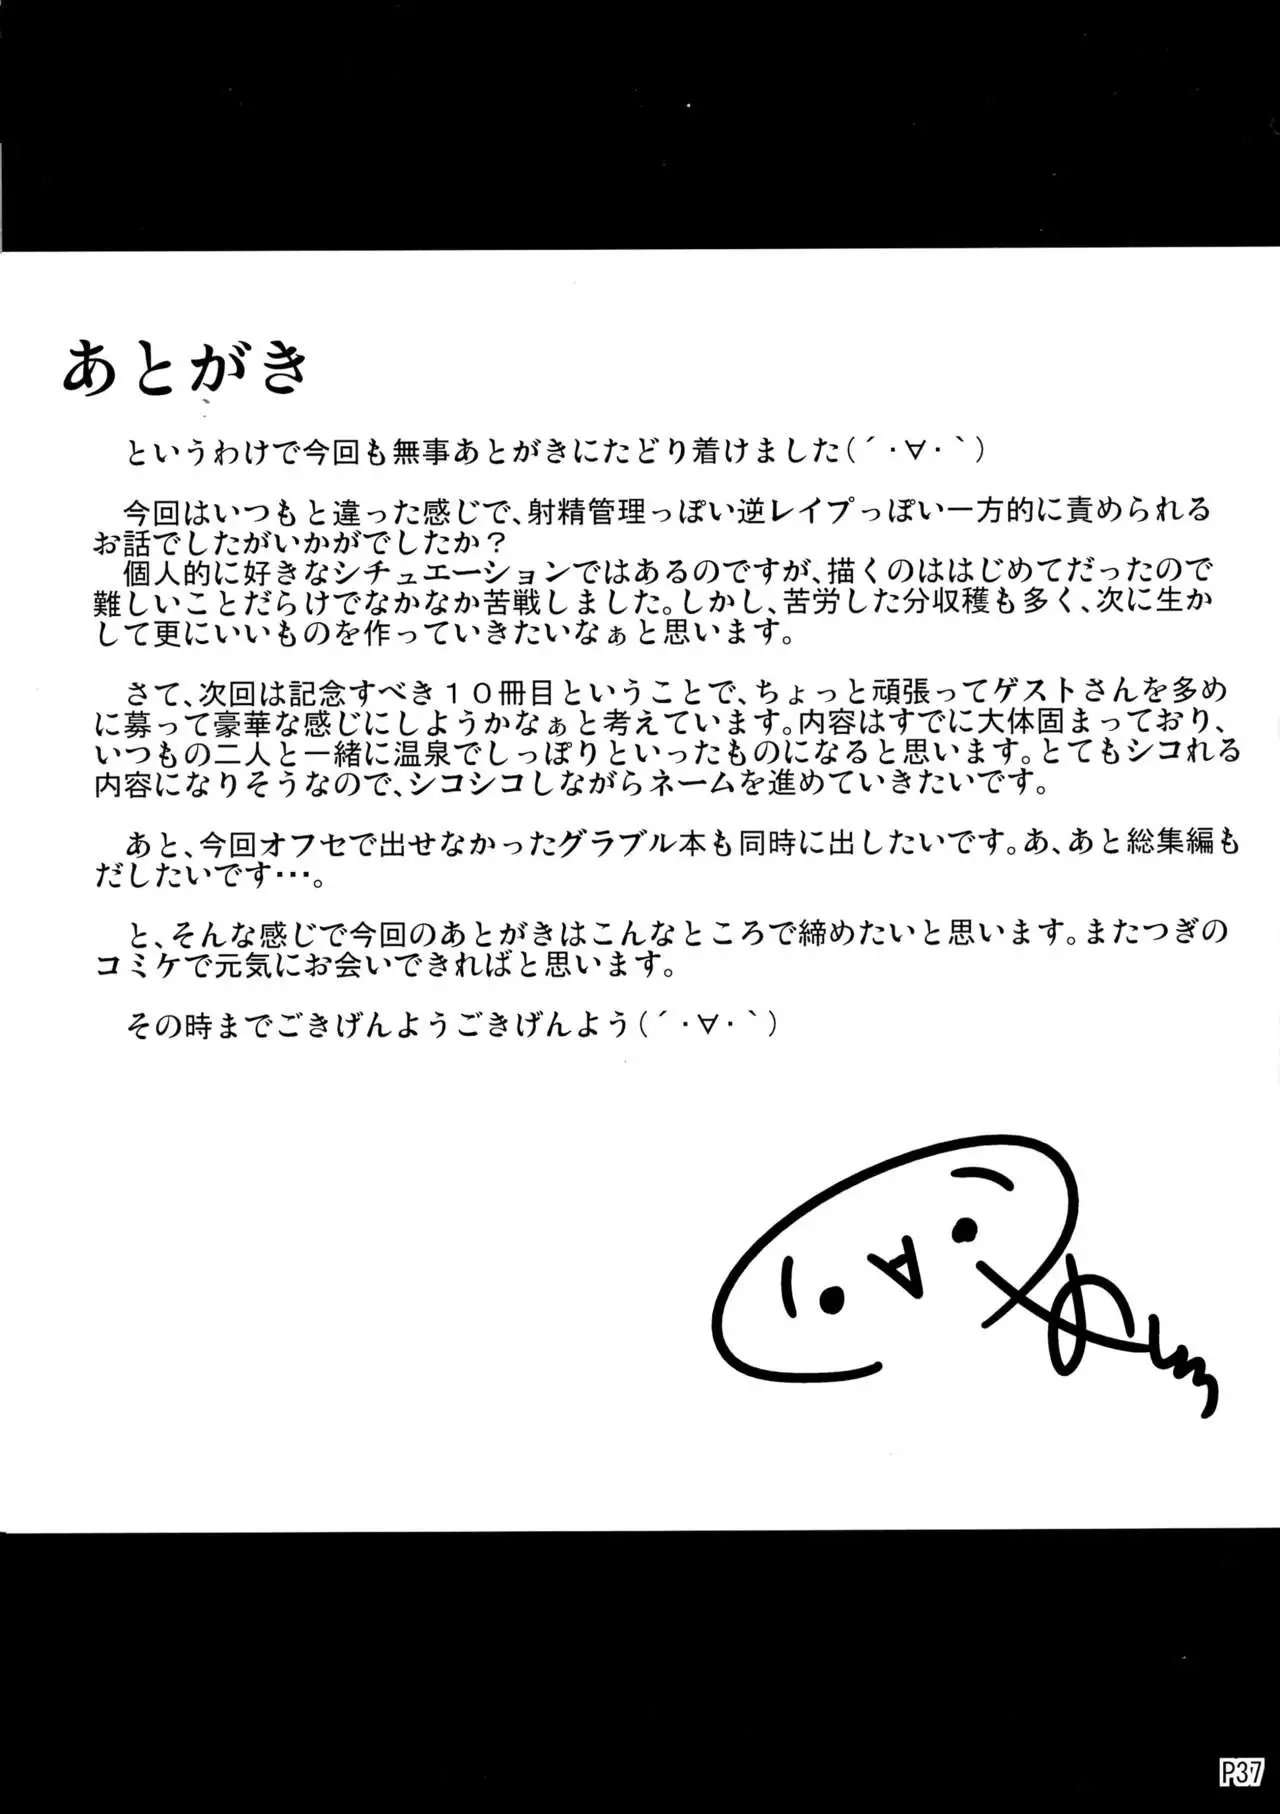 あとがき
というわけで今回も無事あとがきにたどり着けました(´・∀・｀)
今回はいつもと違った感じで、射精管理っぽい逆レイプっぽい一方的に責められる
お話でしたがいかがでしたか？
個人的に好きなシチュエーションではあるのですが、描くのははじめてだったので
難しいことだらけでなかなか苦戦しました。しかし、苦労した分収穫も多く、次に生か
して更にいいものを作っていきたいなぁと思います。
さて、次回は記念すべき１０冊目ということで、ちょっと頑張ってゲストさんを多め
に募って豪華な感じにしようかなぁと考えています。内容はすでに大体固まっており、
いつもの二人と一緒に温泉でしっぽりといったものになると思います。とてもシコれる
内容になりそうなので、シコシコしながらネームを進めていきたいです。
あと、今回オフセで出せなかったグラブル本も同時に出したいです。あ、あと総集編も
だしたいです･･･。
と、そんな感じで今回のあとがきはこんなところで締めたいと思います。またつぎの
コミケで元気にお会いできればと思います。
その時までごきげんようごきげんよう(´・∀・｀)
P37